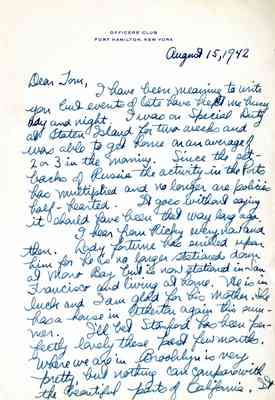 OFFICERS CLUB
FORT HAMILTON, NEW YORK
August 15, 1942
Dear Tom,
I have been meaning to write
you but events of late have kept me busy
day and night. I was on Special Duty
at Staten Island for two weeks and
was able to get home on an average of
2 or 3 in the morning. Since the set-
backs of Russia the activity in the Ports
has multiplied and no longer are policies
half-hearted. It goes without saying
it should have been that way long ago.
I hear from Richy every now and
then. Lady fortune has smiled upon
him for he is no longer stationed down
at Morro Bay but is now stationed in San
Francisco and living at home. He is in
luck and I am glad for his mother who
has a house in Atherton again this sum-
mer. I'll bet Stanford has been per-
fectly lovely these past few months.
Where we are in Brooklyn is very
pretty, but nothing can compare with
the beautiful parts of California. It